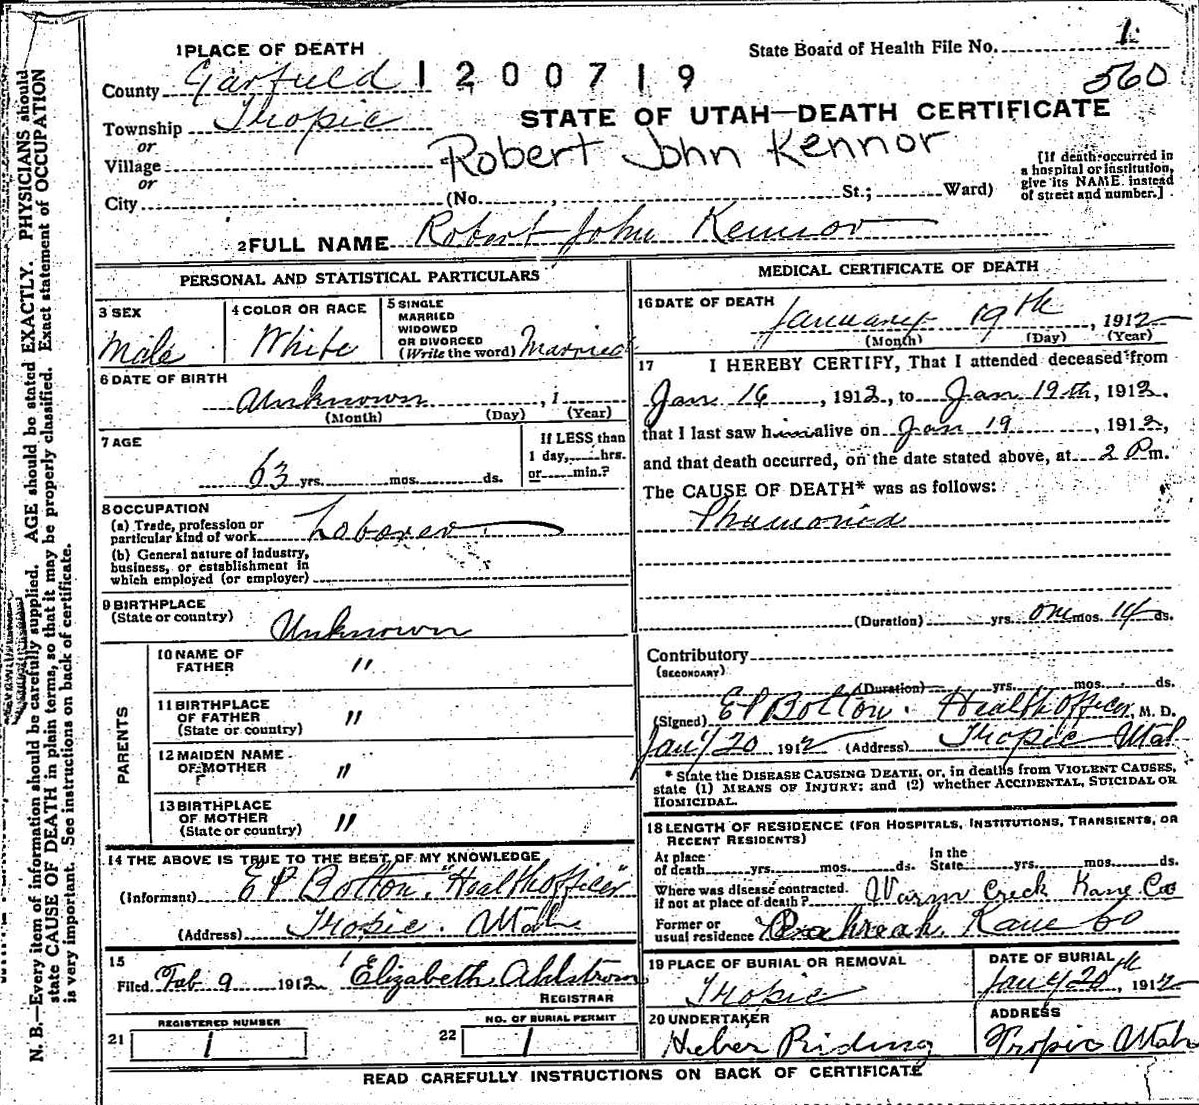 1 PLACE OF DEATH
State Board of Health File No. 1
County Garfield 1200719
560
Township Tropic
STATE OF UTAH—DEATH CERTIFICATE
or
Village
Robert John Kennor
or
City (No. , St.; Ward)
[If death occurred in
a hospital or institution,
give its NAME instead
of street and number.]
2 FULL NAME Robert John Kennor
PERSONAL AND STATISTICAL PARTICULARS
3 SEX
Male
4 COLOR OR RACE
White
5 SINGLE
MARRIED
WIDOWED
OR DIVORCED
(Write the word) Married
6 DATE OF BIRTH
Unknown , 1
(Month) (Day) (Year)
7 AGE
63 yrs. mos. ds.
If LESS than
1 day, hrs.
or min.?
8 OCCUPATION
(a) Trade, profession or
particular kind of work Laborer
(b) General nature of industry,
business, or establishment in
which employed (or employer)
9 BIRTHPLACE
(State or country)
Unknown
PARENTS
10 NAME OF
FATHER "
11 BIRTHPLACE
OF FATHER "
(State or country)
12 MAIDEN NAME
OF MOTHER "
13 BIRTHPLACE
OF MOTHER "
(State or country)
14 THE ABOVE IS TRUE TO THE BEST OF MY KNOWLEDGE
(Informant) E P Bolton. "Health officer"
(Address) Tropic. Utah
15
Filed Feb 9 1912 Elizabeth Ahlstrom
REGISTRAR
21 REGISTERED NUMBER
1
22 NO. OF BURIAL PERMIT
1
MEDICAL CERTIFICATE OF DEATH
16 DATE OF DEATH
January 19th , 1912
(Month) (Day) (Year)
17 I HEREBY CERTIFY, That I attended deceased from
Jan 16 , 1912, to Jan 19th, 1912.
that I last saw him alive on Jan 19 , 1912,
and that death occurred, on the date stated above, at 2 P m.
The CAUSE OF DEATH* was as follows:
Phumonia
(Duration) yrs. one mos. 14 ds.
Contributory
(SECONDARY)
(Duration) yrs. mos. ds.
(Signed) E P Bolton. Health Officer, M. D.
Jany 20 1912 (Address) Tropic Utah
* State the DISEASE CAUSING DEATH, or, in deaths from VIOLENT CAUSES,
state (1) MEANS OF INJURY; and (2) whether ACCIDENTAL, SUICIDAL OR
HOMICIDAL.
18 LENGTH OF RESIDENCE (FOR HOSPITALS, INSTITUTIONS, TRANSIENTS, OR
RECENT RESIDENTS)
At place
of death yrs. mos. ds.
In the
State yrs. mos. ds.
Where was disease contracted.
if not at place of death? Warm Creek Kane Co
Former or
usual residence Kane Co
19 PLACE OF BURIAL OR REMOVAL
Tropic
DATE OF BURIAL
Jany 20th, 1912
20 UNDERTAKER
Heber Riding
ADDRESS
Tropic Utah
READ CAREFULLY INSTRUCTIONS ON BACK OF CERTIFICATE
N. B.—Every item of information should be carefully supplied. AGE should be stated EXACTLY. PHYSICIANS should
state CAUSE OF DEATH in plain terms, so that it may be properly classified. Exact statement of OCCUPATION
is very important. See instructions on back of certificate.